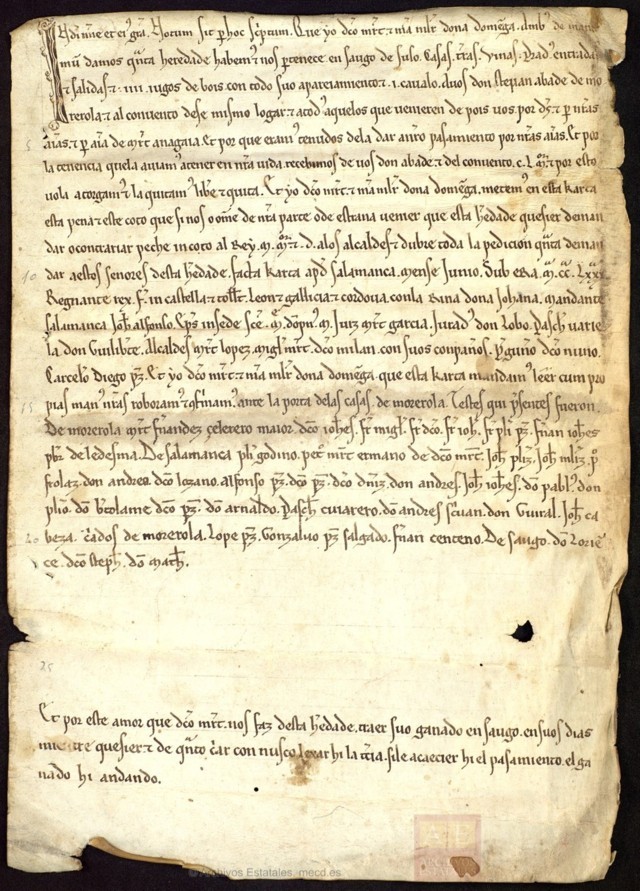 In dei nne et ei' gra. Notum sit p hoc scptum. Que yo dco mrt. & mia mlr dona domega. amb' de
mu' damos quta heredade habem' & nos pertenece en saugo de suso. Casas. tras. vinas. Prad'. entradas
& salidas &. iiii. iugos de bois con todo suo apareciamiento &. i. cavalo. avos don stepan abade de mo
rerola. & al convento dese mismo logar. & a tod' aquelos que venieren de pois vos. por d's. & p nras
aias. & p aia de mrt anagaia. Et por que eram' tenudos dela dar anro pasamiento por nras aias. Et por
la tenencia que la aviam' a tener en nra vida. recebimos de vos don abade & del convento. c. L. mr & por esto
vola atorgam' & la quitam' libre & quita. Et yo dco mrt. & mia mlr dona domega. metem' en esta karta
esta pena & este coto que si nos o ome de nra parte. o de estrana venier que esta hedade quesier deman
dar o contrariar peche in coto al Rey. m. mr. & . d. alos alcaldes & duble toda la pedicion quta deman
dar a estos senores desta hedade. facta karta apd salamanca. mense Junio. Sub era. m. cc. Lxxx
Regnante rex. f. in castella & tollt. leon & gallicia & cordova. con la Rina dona Johana. mandante
salamanca Joh alfonso. Eps in sede sce. m. dopn' m. Juiz mrt garcia. Jurad' don lobo. Pasch varie
la don Guilibte. Alcaldes mrt lopez. migl mrt. dco milan. con suos conpanos. Pguno dco nuno.
Carcelo diego pz. Et yo dco mrt. & mia mlr dona domega. que esta karta mandam' leer cum pro
pias man' nras roboram' & cfimam'. ante la porta delas casas. de morerola. Testes qui psentes fueron.
De morerola mrt fnandez celerero maior. dco iohes. fr migl. fr dco. fr ioh. fr pli pz. fnan iohes
pbr de ledesma. De salamanca pli godino. pet mrt ermano de dco mrt. Joh pliz. Joh mliz. po
frolaz. don andres. dco lozano. alfonso pz. dco pz. dco dniz. don andres. Joh iohes. do pabl'. don
plio. do btolame dco pz. do arnaldo. Pasch cuiarero. do andres scvan. don Guiral. Joh ca
beza. criados de morerola. Lope pz. Gonzaluo pz salgado. fnan centeno. De saugo. do Lorie
ce. dco steph. do math.
Et por este amor que dco mrt. nos faz desta hedade. traer suo ganado en saugo. en suos dias
quesier & de quto criar con nusco lexar hi la tcia. si le acaecier hi el pasamiento. el ga
nado hi andando.
© Archivos Estatales. mecd.es